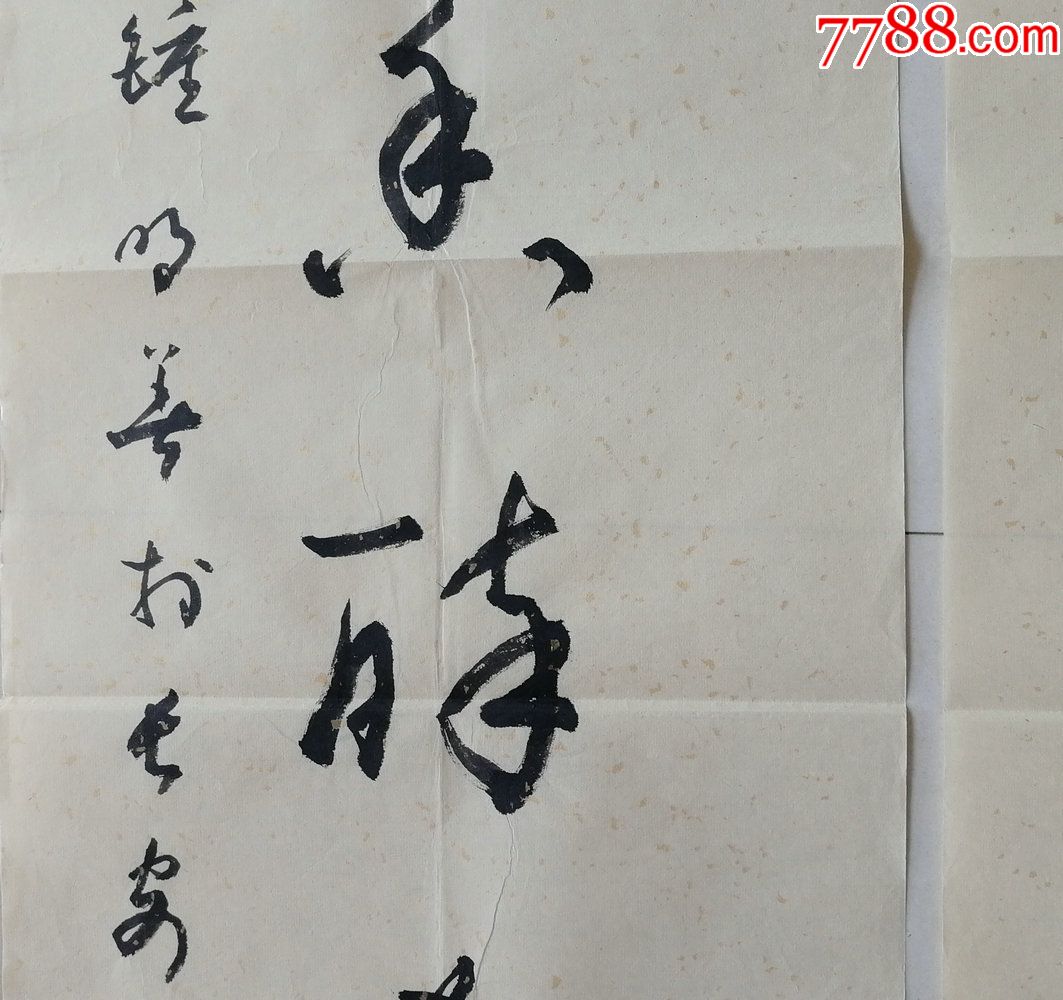 7788.com
醉
鐘明善於長安